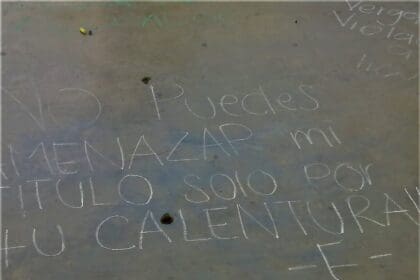 Verga
Viola
NO Puedes
AMENAZAR mi
TITULO SOLO POR
tU CALENTURA!
-E-